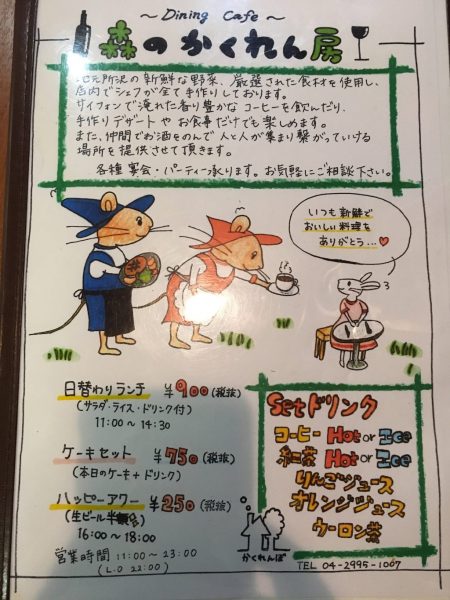 ～ Dining Cafe ～
森のかくれん房
地元所沢の新鮮な野菜、厳選された食材を使用し、
店内でシェフが全て手作りしております。
サイフォンで淹れた香り豊かなコーヒーを飲んだり、
手作りデザートやお食事だけでも楽しめます。
また、仲間でお酒をのんで人と人が集まり繋がっていける
場所を提供させて頂きます。
各種宴会・パーティー承ります。お気軽にご相談下さい。
いつも新鮮で
おいしい料理を
ありがとう…♥
日替わりランチ ¥900(税抜)
(サラダ・ライス・ドリンク付)
11:00 ～ 14:30
ケーキセット ¥750(税抜)
(本日のケーキ + ドリンク)
ハッピーアワー ¥250(税抜)
(生ビール半額)
16:00 ～ 18:00
営業時間 11:00 ～ 23:00
(L.O 22:00)
Setドリンク
コーヒー Hot or Ice
紅茶 Hot or Ice
りんごジュース
オレンジジュース
ウーロン茶
かくれんぼ
TEL 04-2995-1007